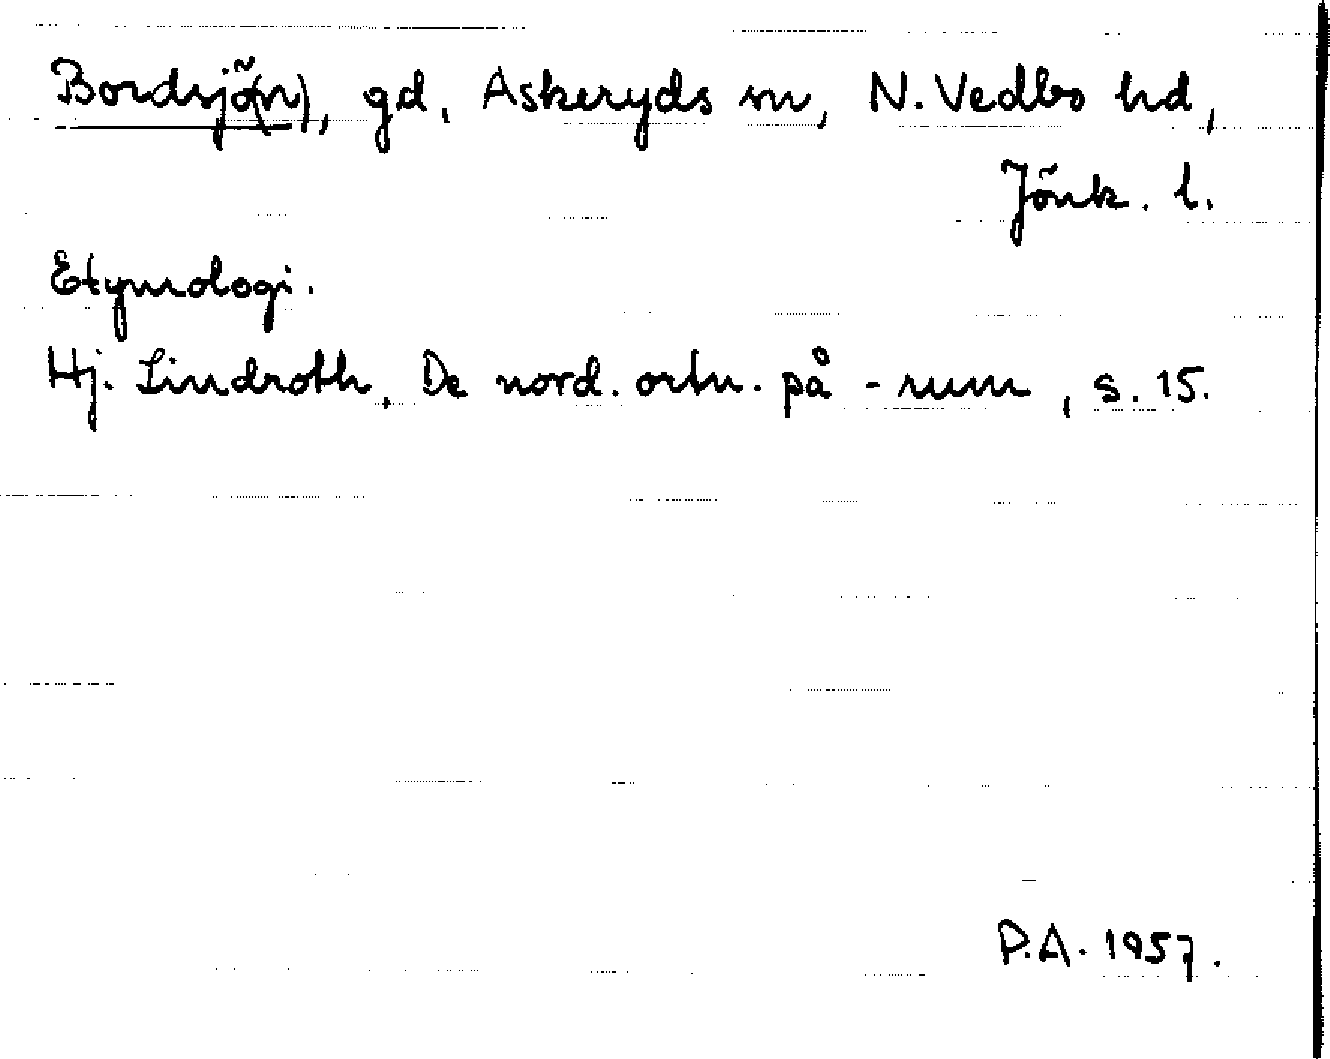 Bordsjö(n), gd, Askeryds sn, N. Vedbo hd,
Jönk. l.
Etymologi.
Hj. Lindroth, De nord. ortn. på -rum, s. 15.
P.A. 1957.